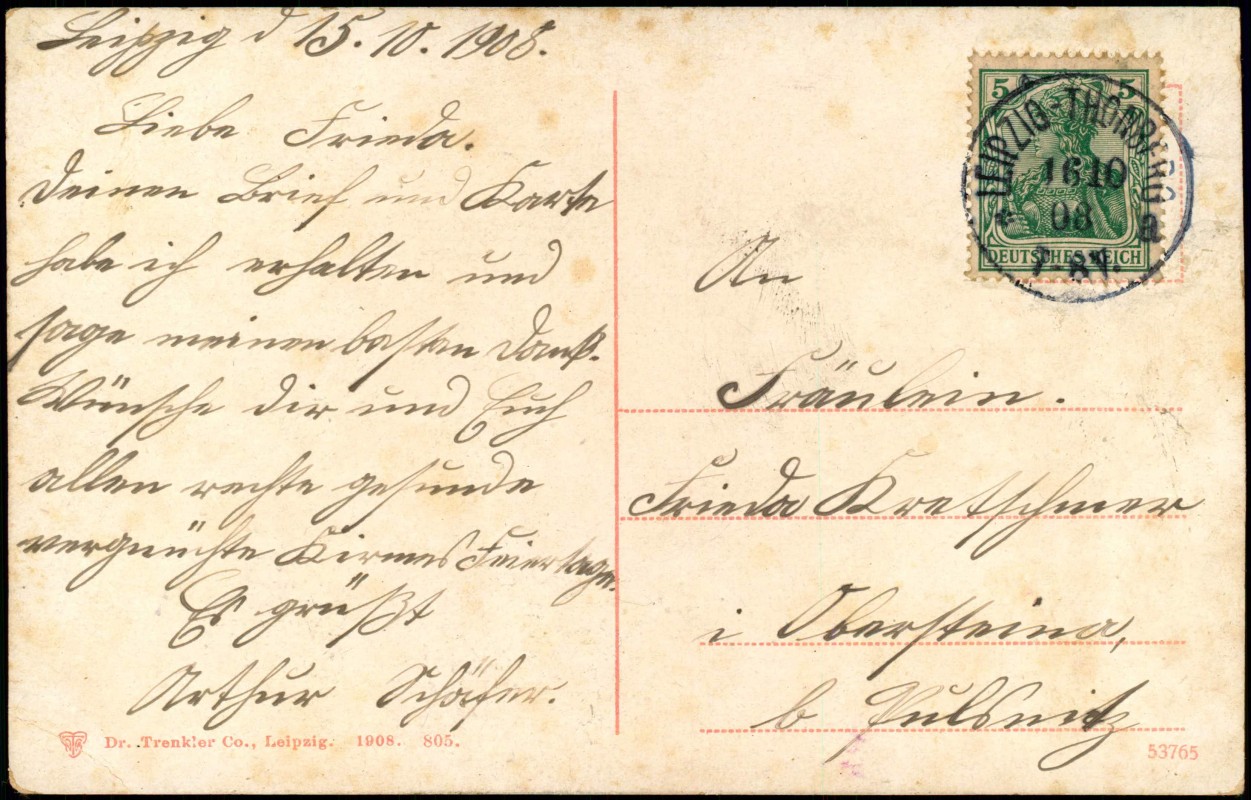 Leipzig d 15.10.1908.
Liebe Frieda.
Deinen Brief und Karte
habe ich erhalten und
sage meinen besten Dank.
Wünsche dir und Euch
allen rechte gesunde
vergnüchte Kirmes Feiertage.
Es grüßt
Arthur Schäfer.
Dr. Trenkler Co., Leipzig. 1908. 805.
5 5
DEUTSCHES REICH
* LEIPZIG-THONBERG a
16 10
08
7-8 V.
An
Fräulein.
Frieda Kretschmer
i Obersteina,
b Pulsnitz
53765